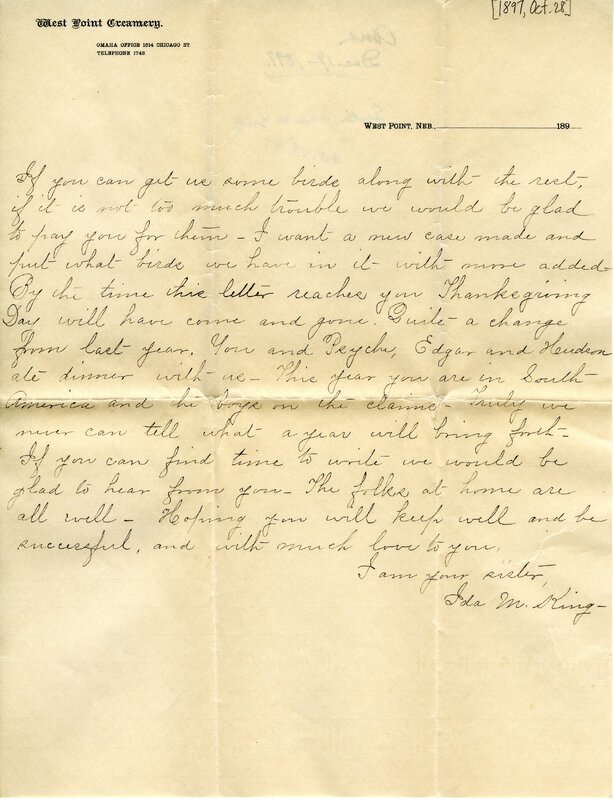 [1897, Oct. 28]
West Point Creamery.
OMAHA OFFICE 1814 CHICAGO ST.
TELEPHONE 1748.
WEST POINT, NEB., 189
If you can get us some birds along with the rest,
if it is not too much trouble we would be glad
to pay you for them - I want a new case made and
put what birds we have in it with more added -
By the time this letter reaches you Thanksgiving
Day will have come and gone. Quite a change
from last year. You and Psyche, Edgar and Hudson
ate dinner with us - This year you are in South
America and the boys on the claims - Truly we
never can tell what a year will bring forth -
If you can find time to write we would be
glad to hear from you - The folks at home are
all well - Hoping you will keep well and be
successful, and with much love to you,
I am your sister,
Ida M. King -